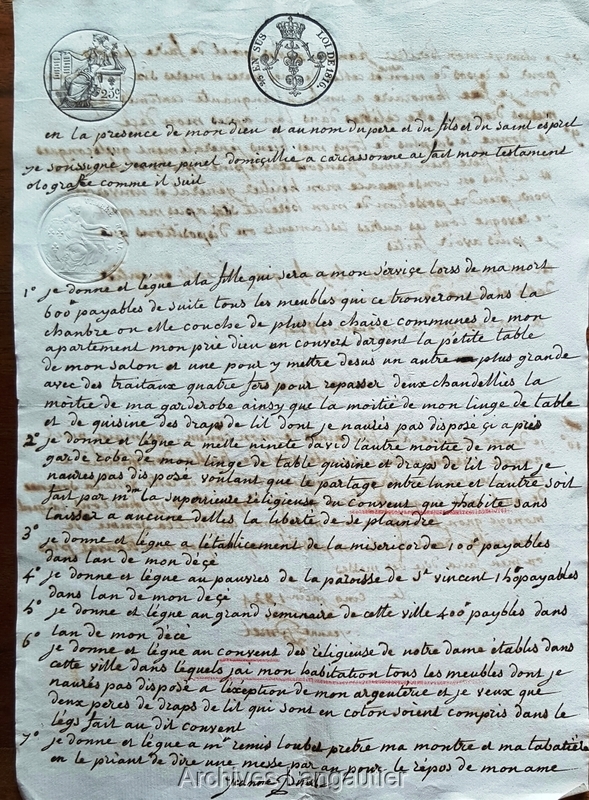 25c
25 EN SUS
LOI DE 1816.
en la presence de mon dieu et au nom du pere et du fils et du saint esprit
je soussigne jeanne pinel domciliée a carcassonne ai fait mon testament
olografe comme il suit
1° je donne et legue a la fille qui sera a mon service lorss de ma mort
600 payables de suite tous les meubles qui ce trouveront dans la
chanbre ou elle couche de plus les chaise communes de mon
apartement mon prie dieu un couvert dargent la petite table
de mon salon et une pour y mettre desus un autre plus grande
avec des traitaux quatre fers pour repasser deux chandellies la
moitie de ma garderobe ainsy que la moitie de mon linge de table
et de quisine des draps de lit dont je naurés pas dispose çi aprés
2° je donne et légue a melle ninete david lautre moitie de ma
garde robe de mon linge de table quisine et draps de lit dont je
naures pas dis pose voulant que le partage entre lune et lautre soit
fait par mme la superrieure religieuse du couvent que jhabite sans
laisser a aucune delles la liberté de se plaindre
3° je donne et légue a létablicement de la misericorde 100 payables
dans lan de mon déçé
4° je donne et légue au pauvres de la paroisse de st vincent 150 payables
dans lan de mon deçi
5° je donne et légue au grand séminaire de cette ville 400 paybles dans
lan de mon décé
6° je donne et légue au convent des réligieuse de notre dame étables dans
cette ville dans léquels jai mon habitation tous les meubles dont je
naurés pas disposé a léxception de mon argentérie et je veux que
deux peres de draps de lit qui sont en coton soient compris dans le
legs fait au dit convent
7° je donne et légue a mr remis loubet pretre ma montre et ma tabatiére
en le priant de dire une messe par an pour le répos de mon ame
jeanne pinel
Archives Langautier